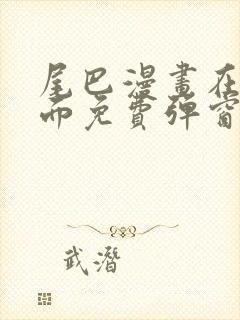 尾巴漫畫在
而免費彈窗
武潛